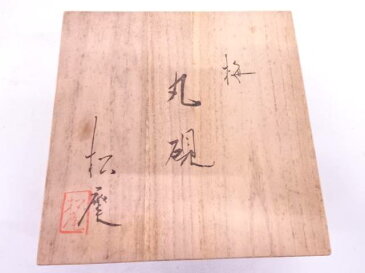 梅
丸硯
松麿